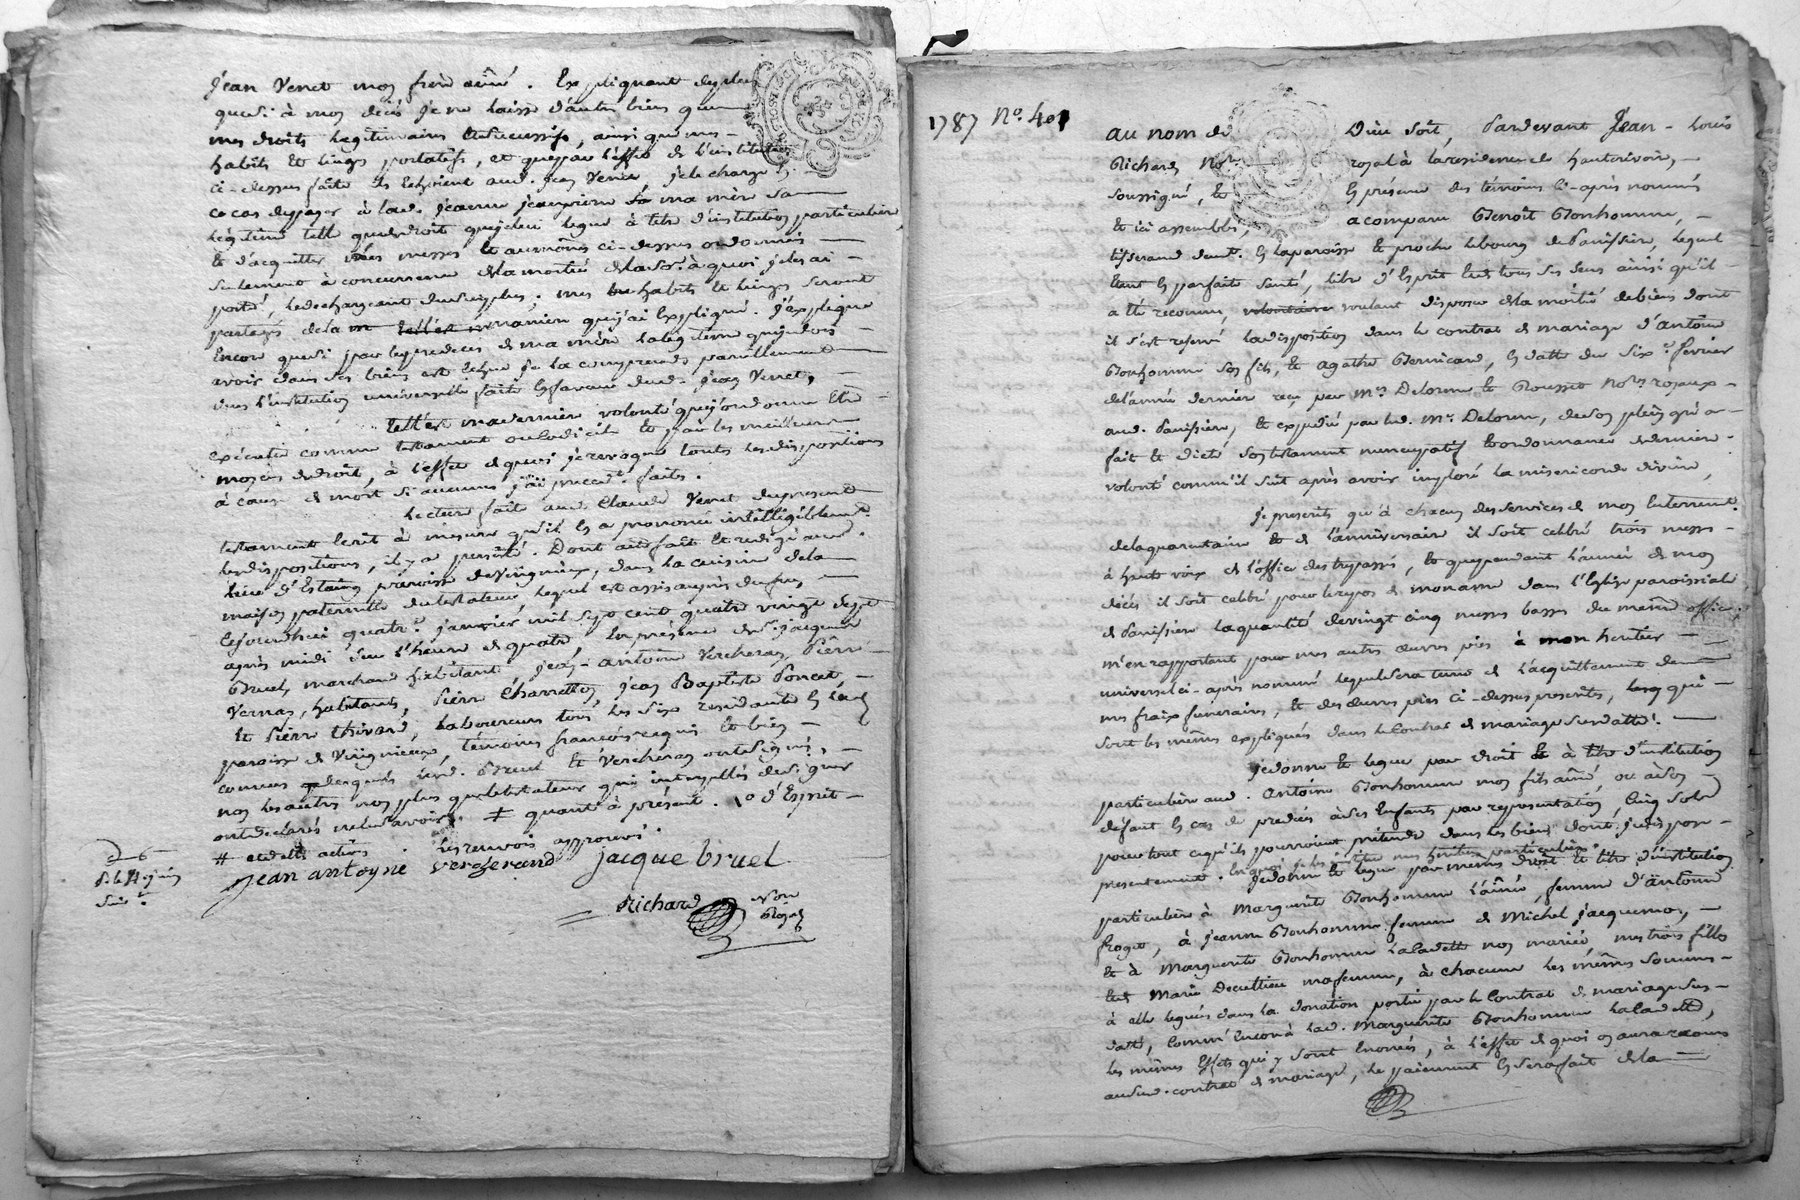 Jean Venet mon frere ainé. Expliquant de plus
que si à mon décès je ne laisse d'autres biens que
mes droits legitimaires et successifs, ainsi que mes
habits et linges portatifs, et que par l'effet de l'institution
ci-dessus faite ils échoient aud. Jean Venet je le charge
ce cas de payer à lad. Jeanne ma mère sa
légitime telle que de droit que je lui legue à titre d'institution particulière
et d'acquitter les messes et aumônes ci-dessus ordonnées
seulement à concurrence de la moitié de la so. à quoi je les ai
porté, le dechargeant du surplus; mes habits et linges seront
partagés de la maniere que j'ai expliqué. J'explique
encore que si par le predeces de ma mère la legitime que je dois
avoir dans ses biens est echue je la comprends pareillement
dans l'institution universelle faite en faveur dud. Jean Venet,
tell'est ma derniere volonté que j'ordonne etre
exécutée comme testament ou codicile et par les meilleurs
moyens de droit, à l'effet de quoi je revoque toutes les dispositions
à cause de mort si aucunes j'ai précédt. faites.
Lecture faite aud. Claude Venet du present
testament ecrit à mesure qu'il en a prononcé intelligiblement
les dispositions, il y a persisté. Dont acte fait et redigé aud.
lieu d'Estaing paroisse de Viigneux, dans la cuisine de la
maison paternelle du testateur, lequel est assis auprès du feu,
cejourdhui quatre janvier mil sept cent quatre vingt sept
après midi sur l'heure de quatre en présence de sr. jacques
Bruel, marchand habitant, Jean-antoine Vercherand, Pierre
Vernas, habitants, Pierre Charretton, Jean Baptiste Poncet,
et Pierre Thivard, laboureurs tous les six residants en lad.
paroisse de Viigneux, témoins francois requis et bien
connus desquels lesd. Bruel et Vercherand ont signé,
non les autres non plus que le testateur qui interpellés de signer
ont declarés ne le savoir. # quant à présent. d'Esprit
# les renvois approuvés.
jean antoyne vercherand jacque bruel
Richard Nore
Royal
1787 No. 401
au nom de Dieu soit, Pardevant Jean-Louis
Richard Nore royal à la residence de hauterivoire,
soussigné, et en présence des témoins ci-après nommés
et ici assemblés, a comparu Benoît Bonhomme,
tisserand demt. en la paroisse et proche le bourg de Panissière, lequel
etant en parfaite santé, libre d'Esprit et de tous ses sens ainsi qu'il
a été reconnu, volontaire voulant disposer de la moitié de biens dont
il s'est reservé la disposition dans le contrat de mariage d'antoine
Bonhomme son fils, et agathe Bernicard, en datte du six fevrier
de l'année derniere reçu par Mes. Delorme et Rousset Nores royaux
aud. Panissière, et expedié par led. Me. Delorme, de son plein gré a
fait et dicté son testament nuncupatif et ordonnance de derniere
volonté comm'il suit après avoir imploré la misericorde divine,
Je prescrits qu'à chacun des services de mon enterrement
de la quarantaine et de l'anniversaire il soit celebré trois messes
à haute voix de l'office des trepassés, et que pendant l'année de mon
décès il soit celebré pour le repos de mon ame dans l'Eglise paroissiale
de Panissiere la quantité de vingt cinq messes basses du même office
m'en rapportant pour mes autres œuvres pies à mon heritier
universel ci-après nommé lequel sera tenu de l'acquittement de
mes fraix funeraires, et des œuvres pies ci-dessus prescrites, lesq qui
sont les mêmes expliqués dans le contrat de mariage susdatté.
Je donne et legue par droit et à titre d'institution
particuliere aud. antoine Bonhomme mon fils ainé, ou à son
defaut en cas de predecés à ses Enfants par representation, cinq sols
pour tout ce qu'ils pourroient prétendre dans les biens dont je dispose
presentement. en quoi je les institue mes heritiers particuliers
Je donne et legue par memes droit et titre d'institution
particulière à Marguerite Bonhomme l'ainée, femme d'antoine
froget, à jeanne Bonhomme femme de Michel jacquemot,
et à Marguerite Bonhomme la cadette non mariée, mes trois filles
et de Marie Decultieu ma femme, à chacune les mêmes sommes
à elle leguées dans la donation portée par le contrat de mariage sus
daté, comm'encor à lad. Marguerite Bonhomme la cadette,
les mêmes effets qui y sont enoncés, à l'effet de quoi on aura recours
au sud. contrat de mariage, le paiement en sera fait de la